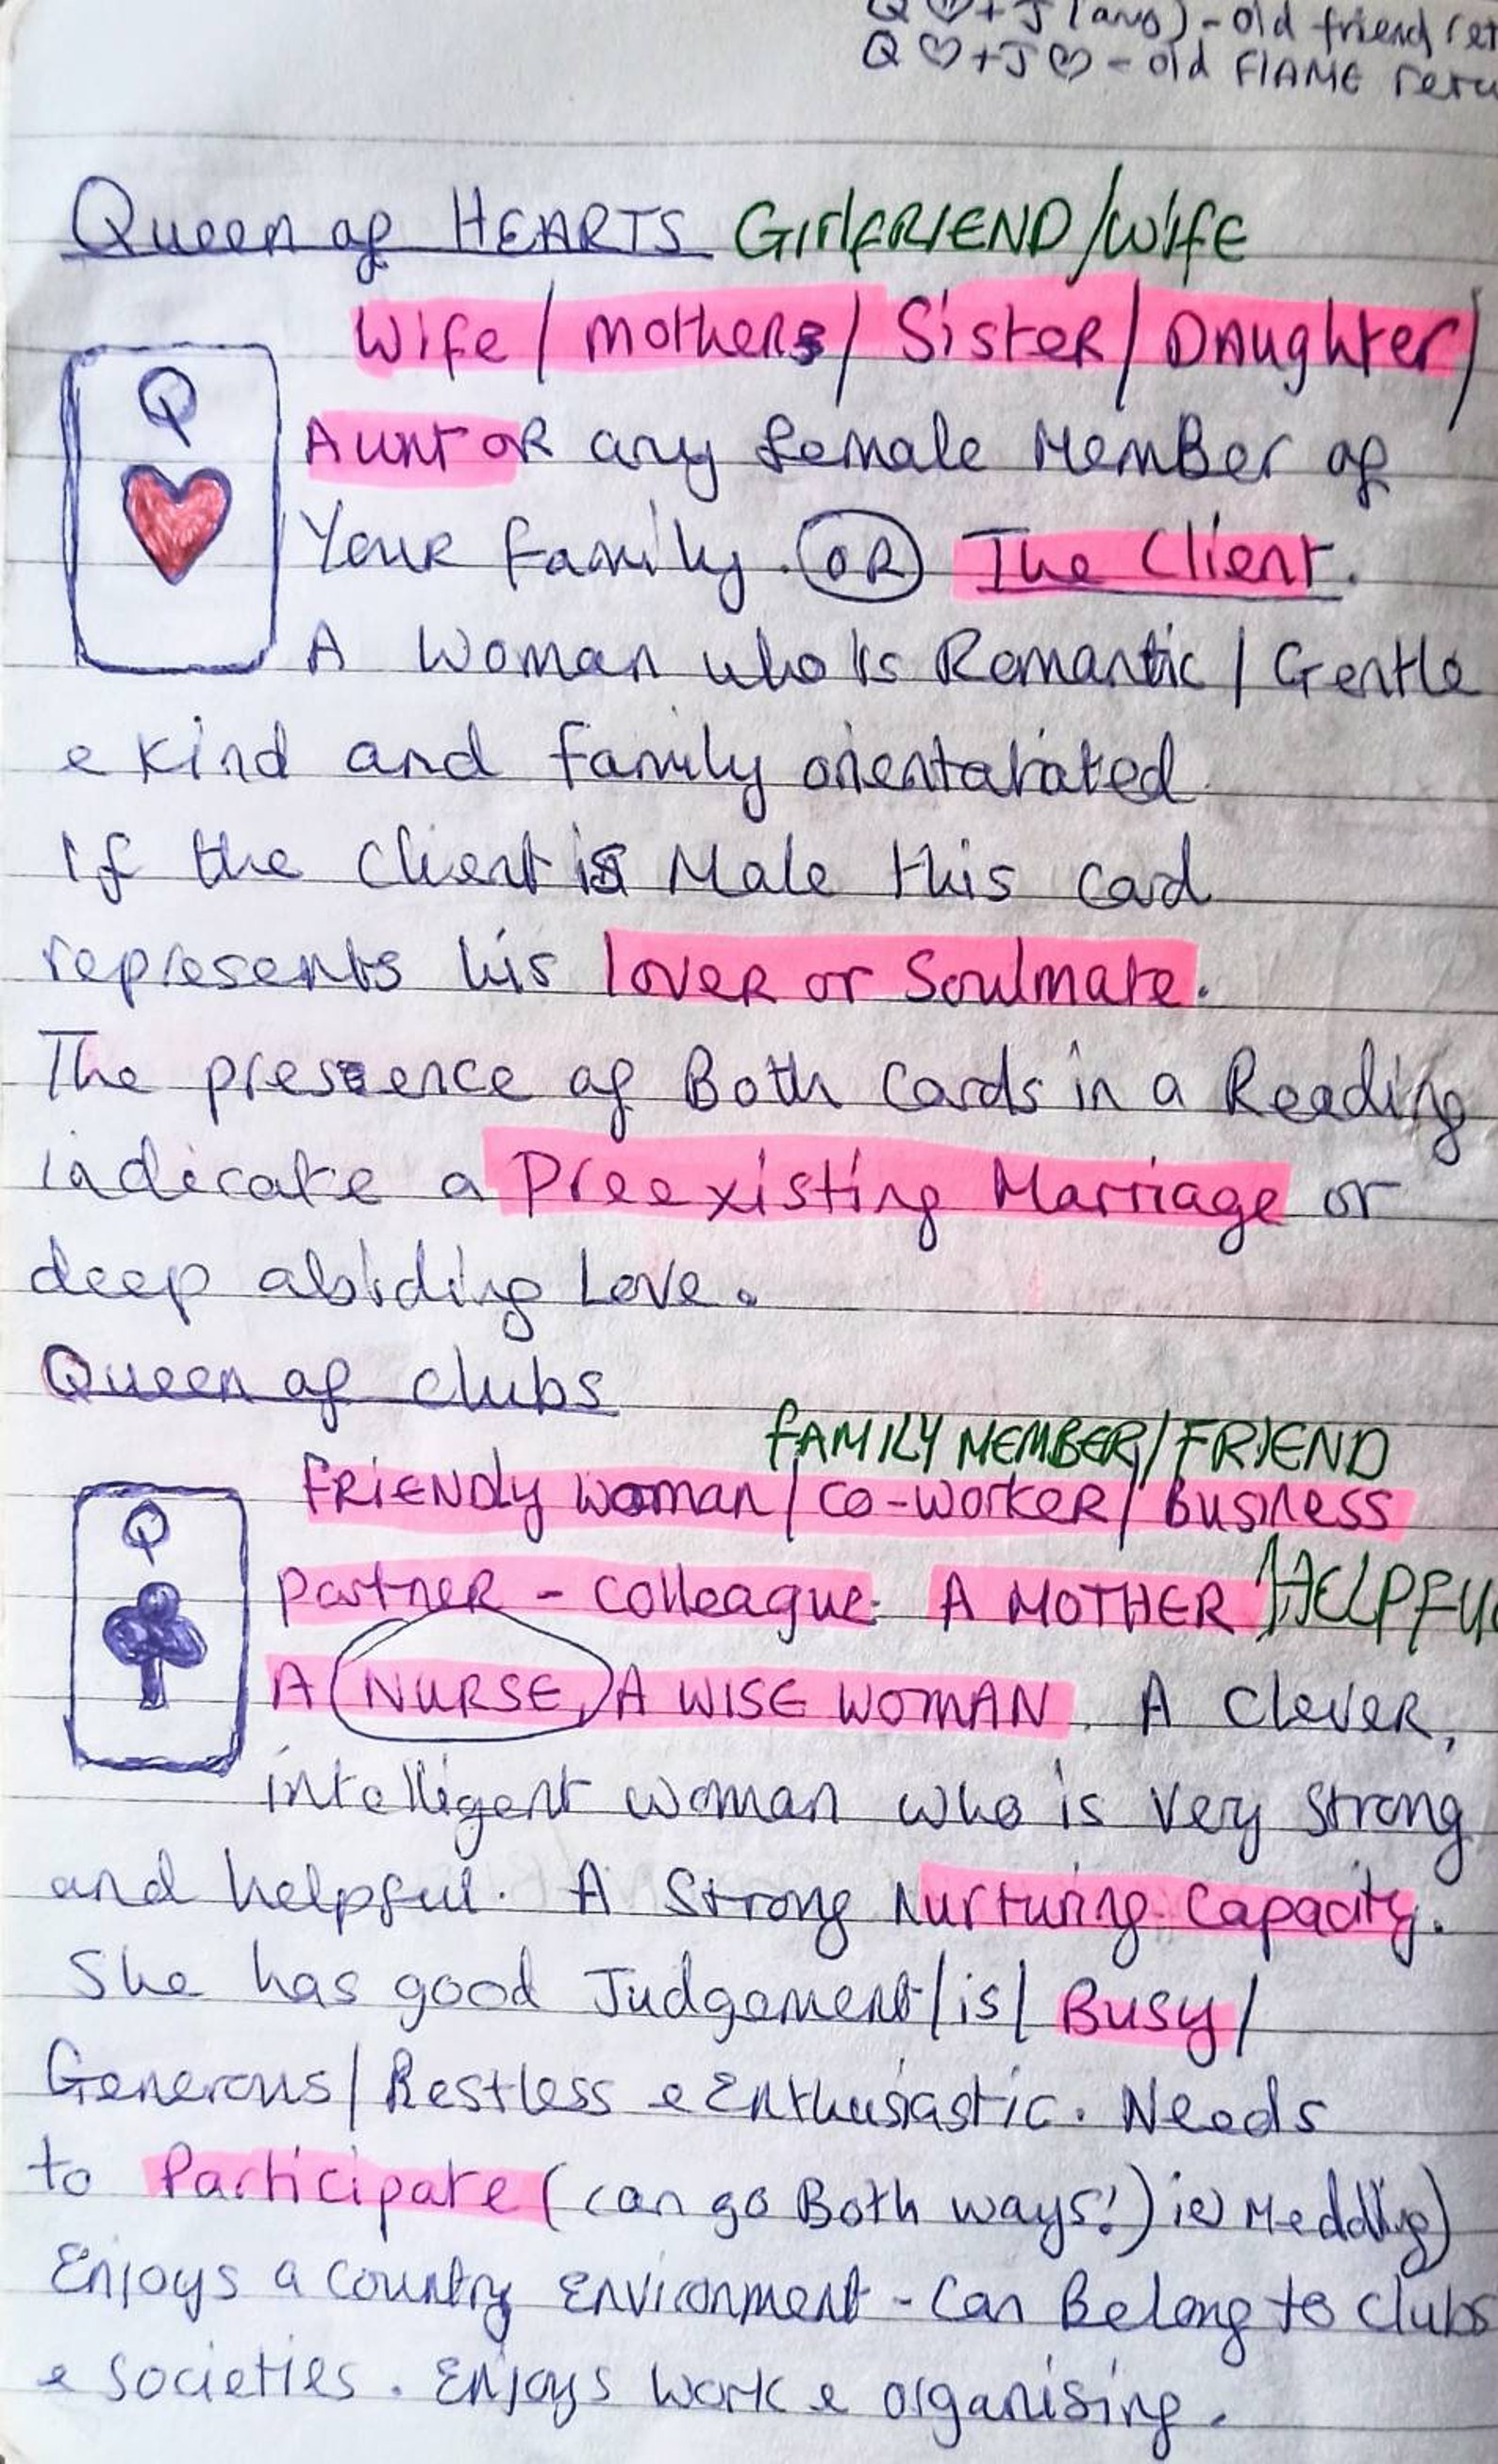 Q ♡ + J (any) - old friend ret
Q ♡ + J ♡ - old FLAME retu
Queen of HEARTS GirlFRIEND/Wife
Wife / Mothers / Sister / Daughter /
Q
Aunt or any female Member of
Your family. OR The Client.
A Woman who is Romantic / Gentle
e kind and family orientatated
If the client is Male this card
represents his lover or Soulmate.
The presence of Both Cards in a Reading
indicate a Preexisting Marriage or
deep abiding Love.
Queen of clubs
FAMILY MEMBER/FRIEND
FRIENDly woman / co-worker / business
Q
partner - colleague. A MOTHER /HELPFUL
A NURSE, A WISE WOMAN. A Clever,
intelligent woman who is Very strong
and helpful. A Strong Nurturing Capacity.
She has good Judgement / is / Busy /
Generous / Restless e Enthusiastic. Needs
to Participate (can go Both ways!) ie) Meddling)
Enjoys a country Environment - Can Belong to clubs
e societies. Enjoys work e organising.